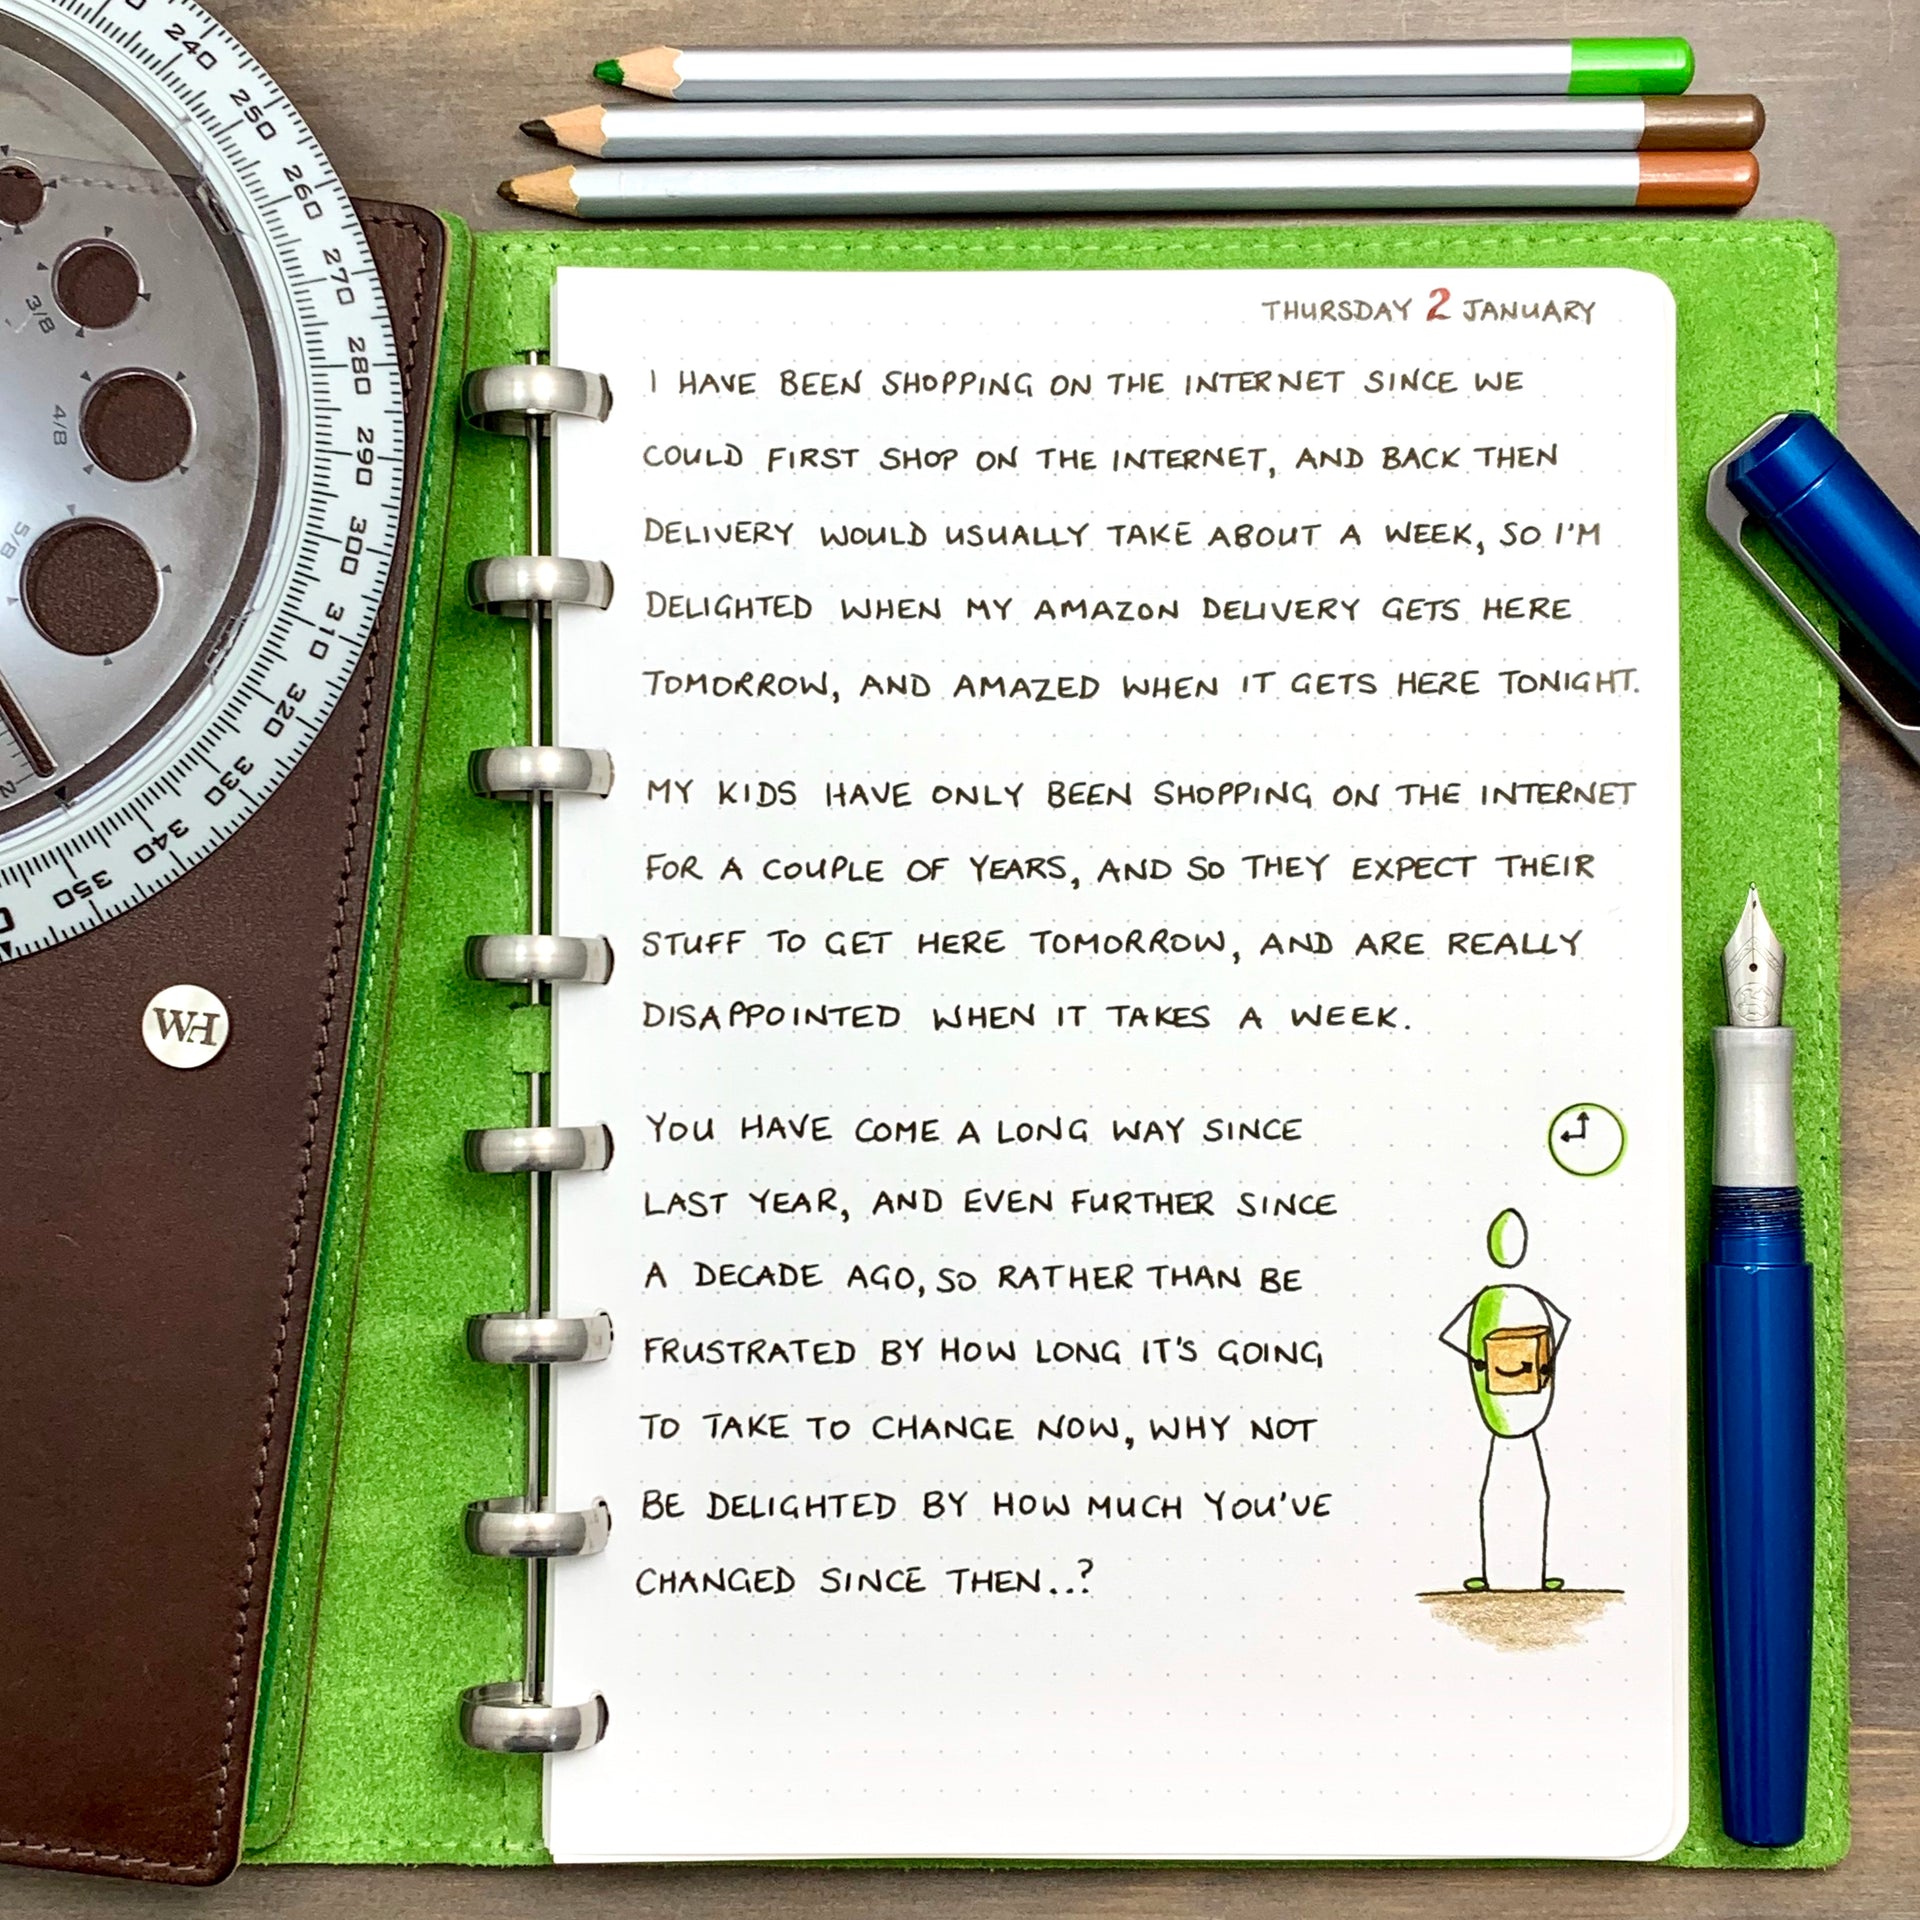 240
250
260
270
280
290
300
310
320
330
340
350
0
3/8
4/8
5/8
WH
THURSDAY 2 JANUARY
I HAVE BEEN SHOPPING ON THE INTERNET SINCE WE
COULD FIRST SHOP ON THE INTERNET, AND BACK THEN
DELIVERY WOULD USUALLY TAKE ABOUT A WEEK, SO I'M
DELIGHTED WHEN MY AMAZON DELIVERY GETS HERE
TOMORROW, AND AMAZED WHEN IT GETS HERE TONIGHT.
MY KIDS HAVE ONLY BEEN SHOPPING ON THE INTERNET
FOR A COUPLE OF YEARS, AND SO THEY EXPECT THEIR
STUFF TO GET HERE TOMORROW, AND ARE REALLY
DISAPPOINTED WHEN IT TAKES A WEEK.
YOU HAVE COME A LONG WAY SINCE
LAST YEAR, AND EVEN FURTHER SINCE
A DECADE AGO, SO RATHER THAN BE
FRUSTRATED BY HOW LONG IT'S GOING
TO TAKE TO CHANGE NOW, WHY NOT
BE DELIGHTED BY HOW MUCH YOU'VE
CHANGED SINCE THEN..?